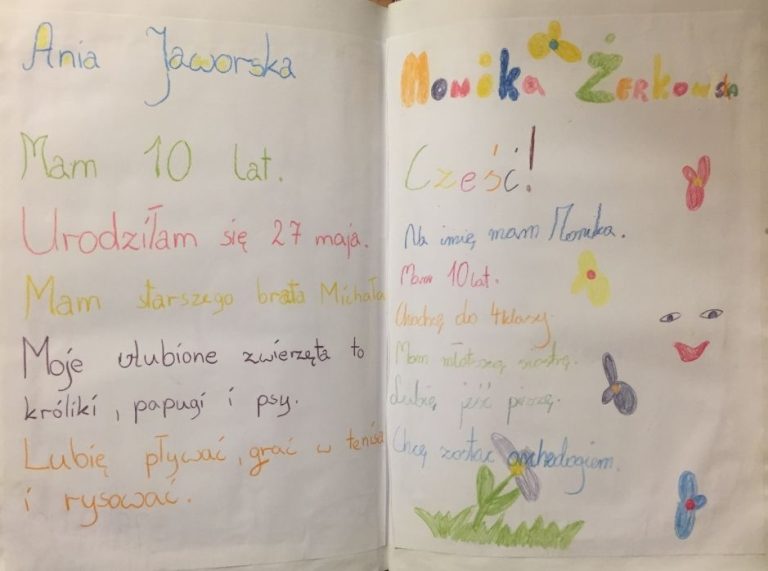 Ania Jaworska
Mam 10 lat.
Urodziłam się 27 maja.
Mam starszego brata Michała
Moje ulubione zwierzęta to
króliki, papugi i psy.
Lubię pływać, grać w tenisa
i rysować.
Monika Żerkowska
Cześć!
Na imię mam Monika.
Mam 10 lat.
Chodzę do 4 klasy
Mam młodszą siostrę.
Lubię jeść pizzę.
Chcę zostać archeologiem.